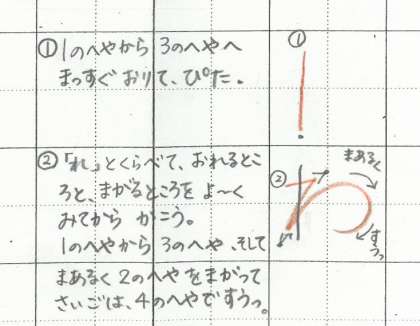 ①1のへやから 3のへやへ
まっすぐ おりて、ぴた。
①
②「れ」とくらべて、おれるとこ
ろと、まがるところを よ～く
みてから かこう。
1のへやから 3のへや、そして
まあるく 2のへやをまがって
さいごは、4のへやですうっ。
②
わ
まあるく
すうっ